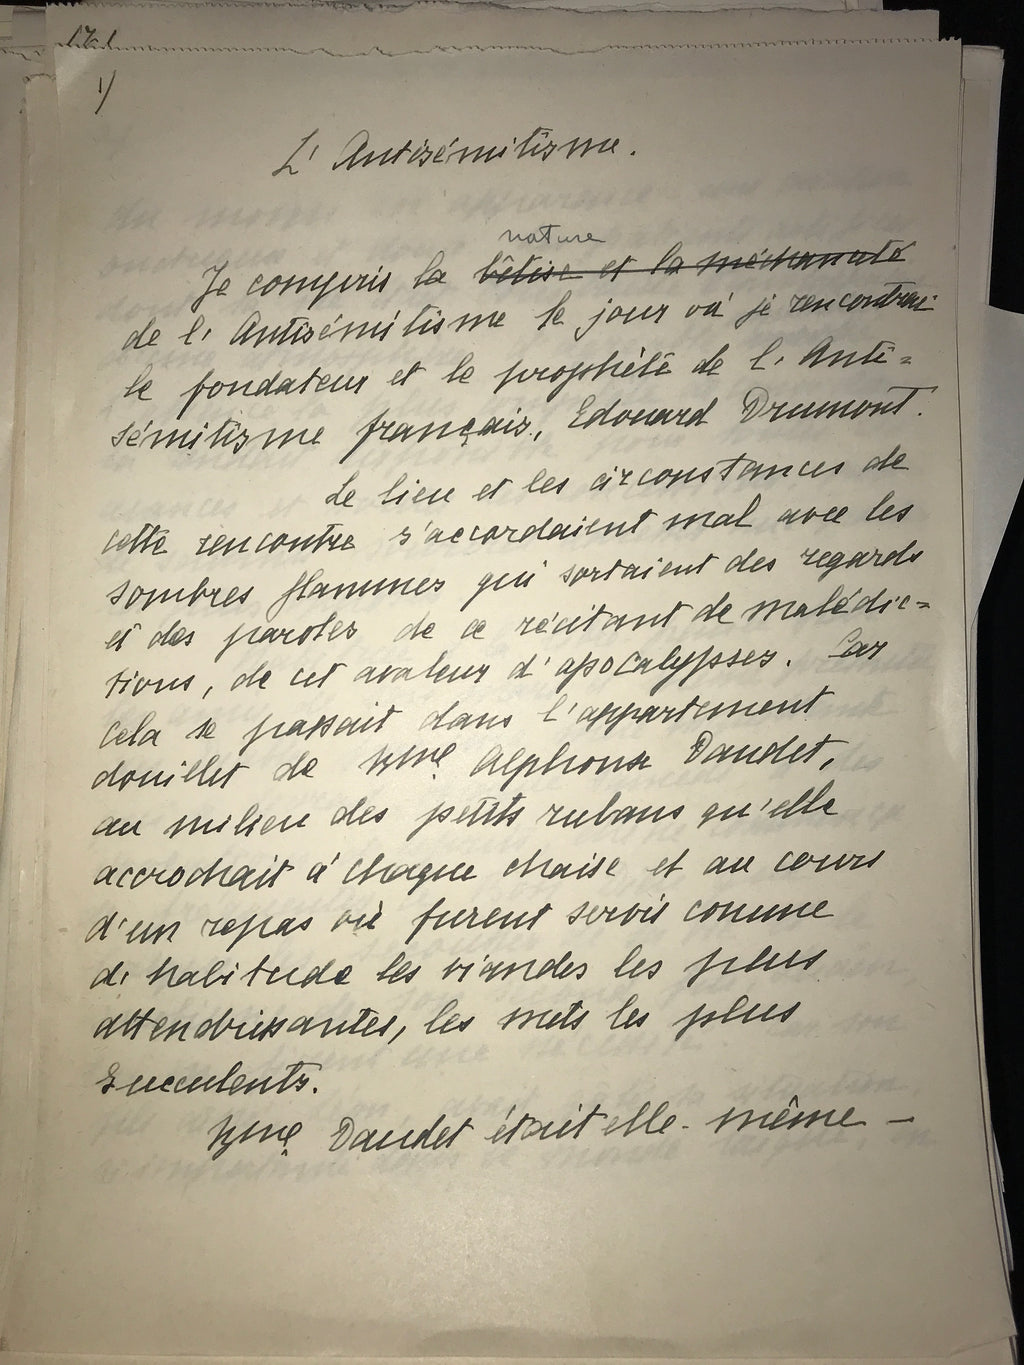 1/
L'Antisémitisme.
nature
Je compris la bêtise et la méchanceté
de l'Antisémitisme le jour où je rencontrai
le fondateur et le prophète de l'Anti=
sémitisme français, Edouard Drumont.
Le lieu et les circonstances de
cette rencontre s'accordaient mal avec les
sombres flammes qui sortaient des regards
et des paroles de ce récitant de malédic=
tions, de cet avaleur d'apocalypses. Car
cela se passait dans l'appartement
douillet de Mme Alphonse Daudet,
au milieu des petits rubans qu'elle
accrochait à chaque chaise et au cours
d'un repas où furent servis comme
d'habitude les viandes les plus
attendrissantes, les mets les plus
succulents.
Mme Daudet était elle-même —